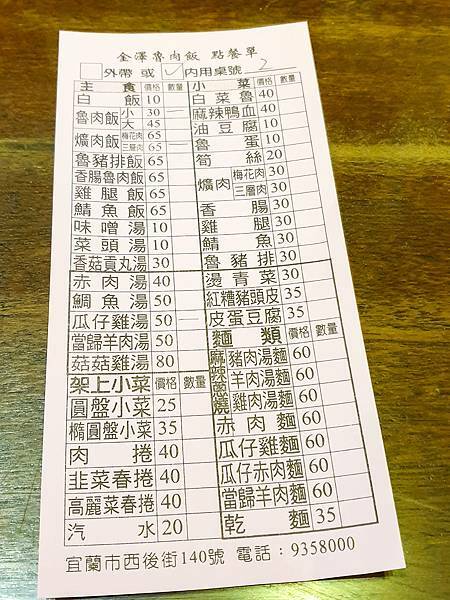 金澤魯肉飯 點餐單
外帶 或 ✓內用桌號 2
主食 價格 數量 小菜 價格 數量
白飯 10 白菜魯 40
魯肉飯 小 30 一 麻辣鴨血 40
大 45 油豆腐 10
爌肉飯 梅花肉 65 一 魯蛋 10
三層肉 65 筍絲 20
魯豬排飯 65 爌肉 梅花肉 30
香腸魯肉飯 65 三層肉 30
雞腿飯 65 香腸 30
鯖魚飯 65 雞腿 30
味噌湯 10 鯖魚 30
菜頭湯 10 魯豬排 30
香菇貢丸湯 30 燙青菜 30
赤肉湯 40 紅糟豬頭皮 35
鯛魚湯 50 皮蛋豆腐 35
瓜仔雞湯 50 一 麵類 價格 數量
當歸羊肉湯 50 麻辣窯燒 豬肉湯麵 60
菇菇雞湯 80 羊肉湯麵 60
架上小菜 價格 數量 雞肉湯麵 60
圓盤小菜 25 赤肉麵 60
橢圓盤小菜 35 瓜仔雞麵 60
肉捲 40 瓜仔赤肉麵 60
韭菜春捲 40 當歸羊肉麵 60
高麗菜春捲 40 乾麵 35
汽水 20
宜蘭市西後街140號 電話：9358000